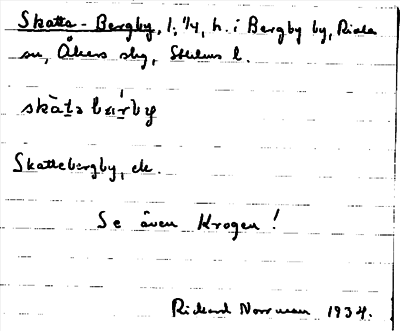 Skatta-Bergby, 1, 1/4, h. i Bergby by, Riala
sn, Åkers sky, Sthlms l.
skàtə bær̀by
Skattebergby, ek.
Se även Krogen!
Rickard Norrman 1934.